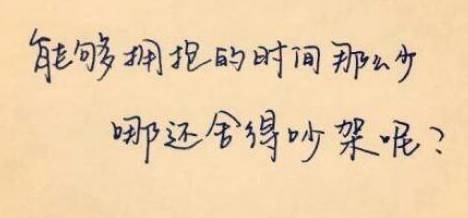 能够拥抱的时间那么少
哪还舍得吵架呢？